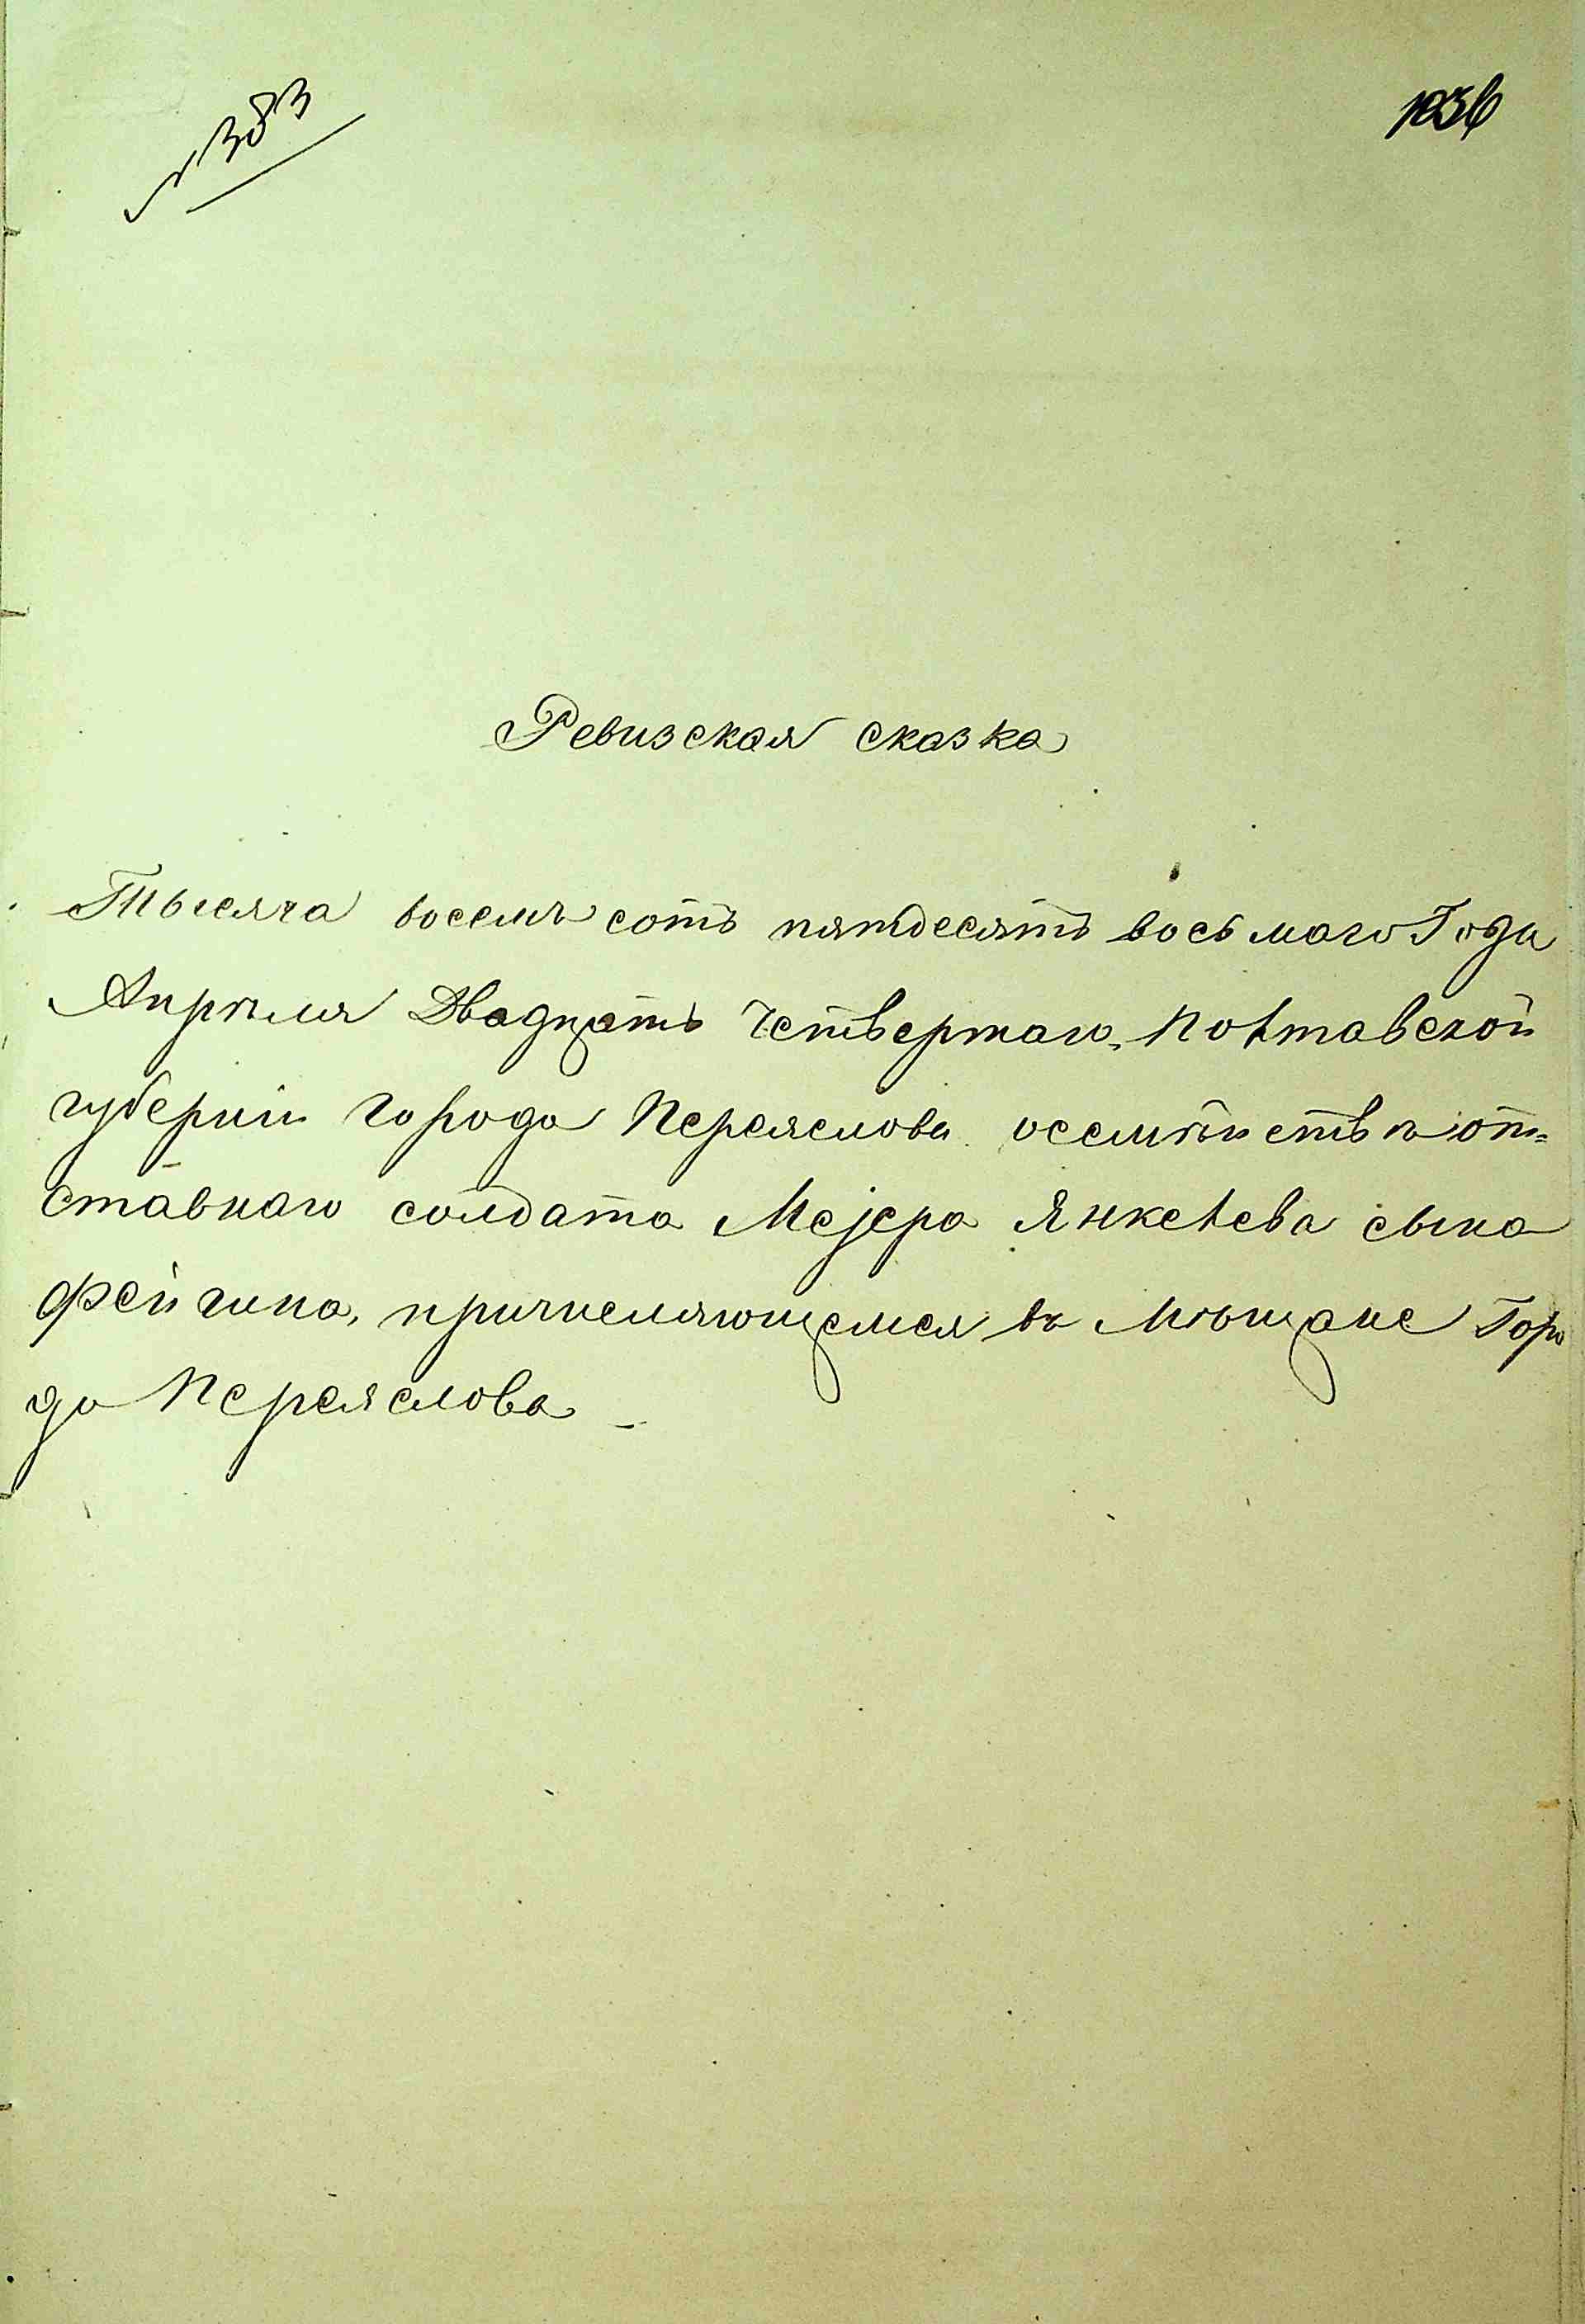 № 383
1036
Ревизская сказка
Тысяча восемъ сотъ пятдесятъ восьмаго Года
Апрѣля Двадцать Четвертаго, Полтавской
губерніи города Переяслова о семѣйствѣ от=
ставнаго солдата Мејера Янкелева сына
Фейгина, причисляющемся въ Мѣщане Горо
да Переяслова